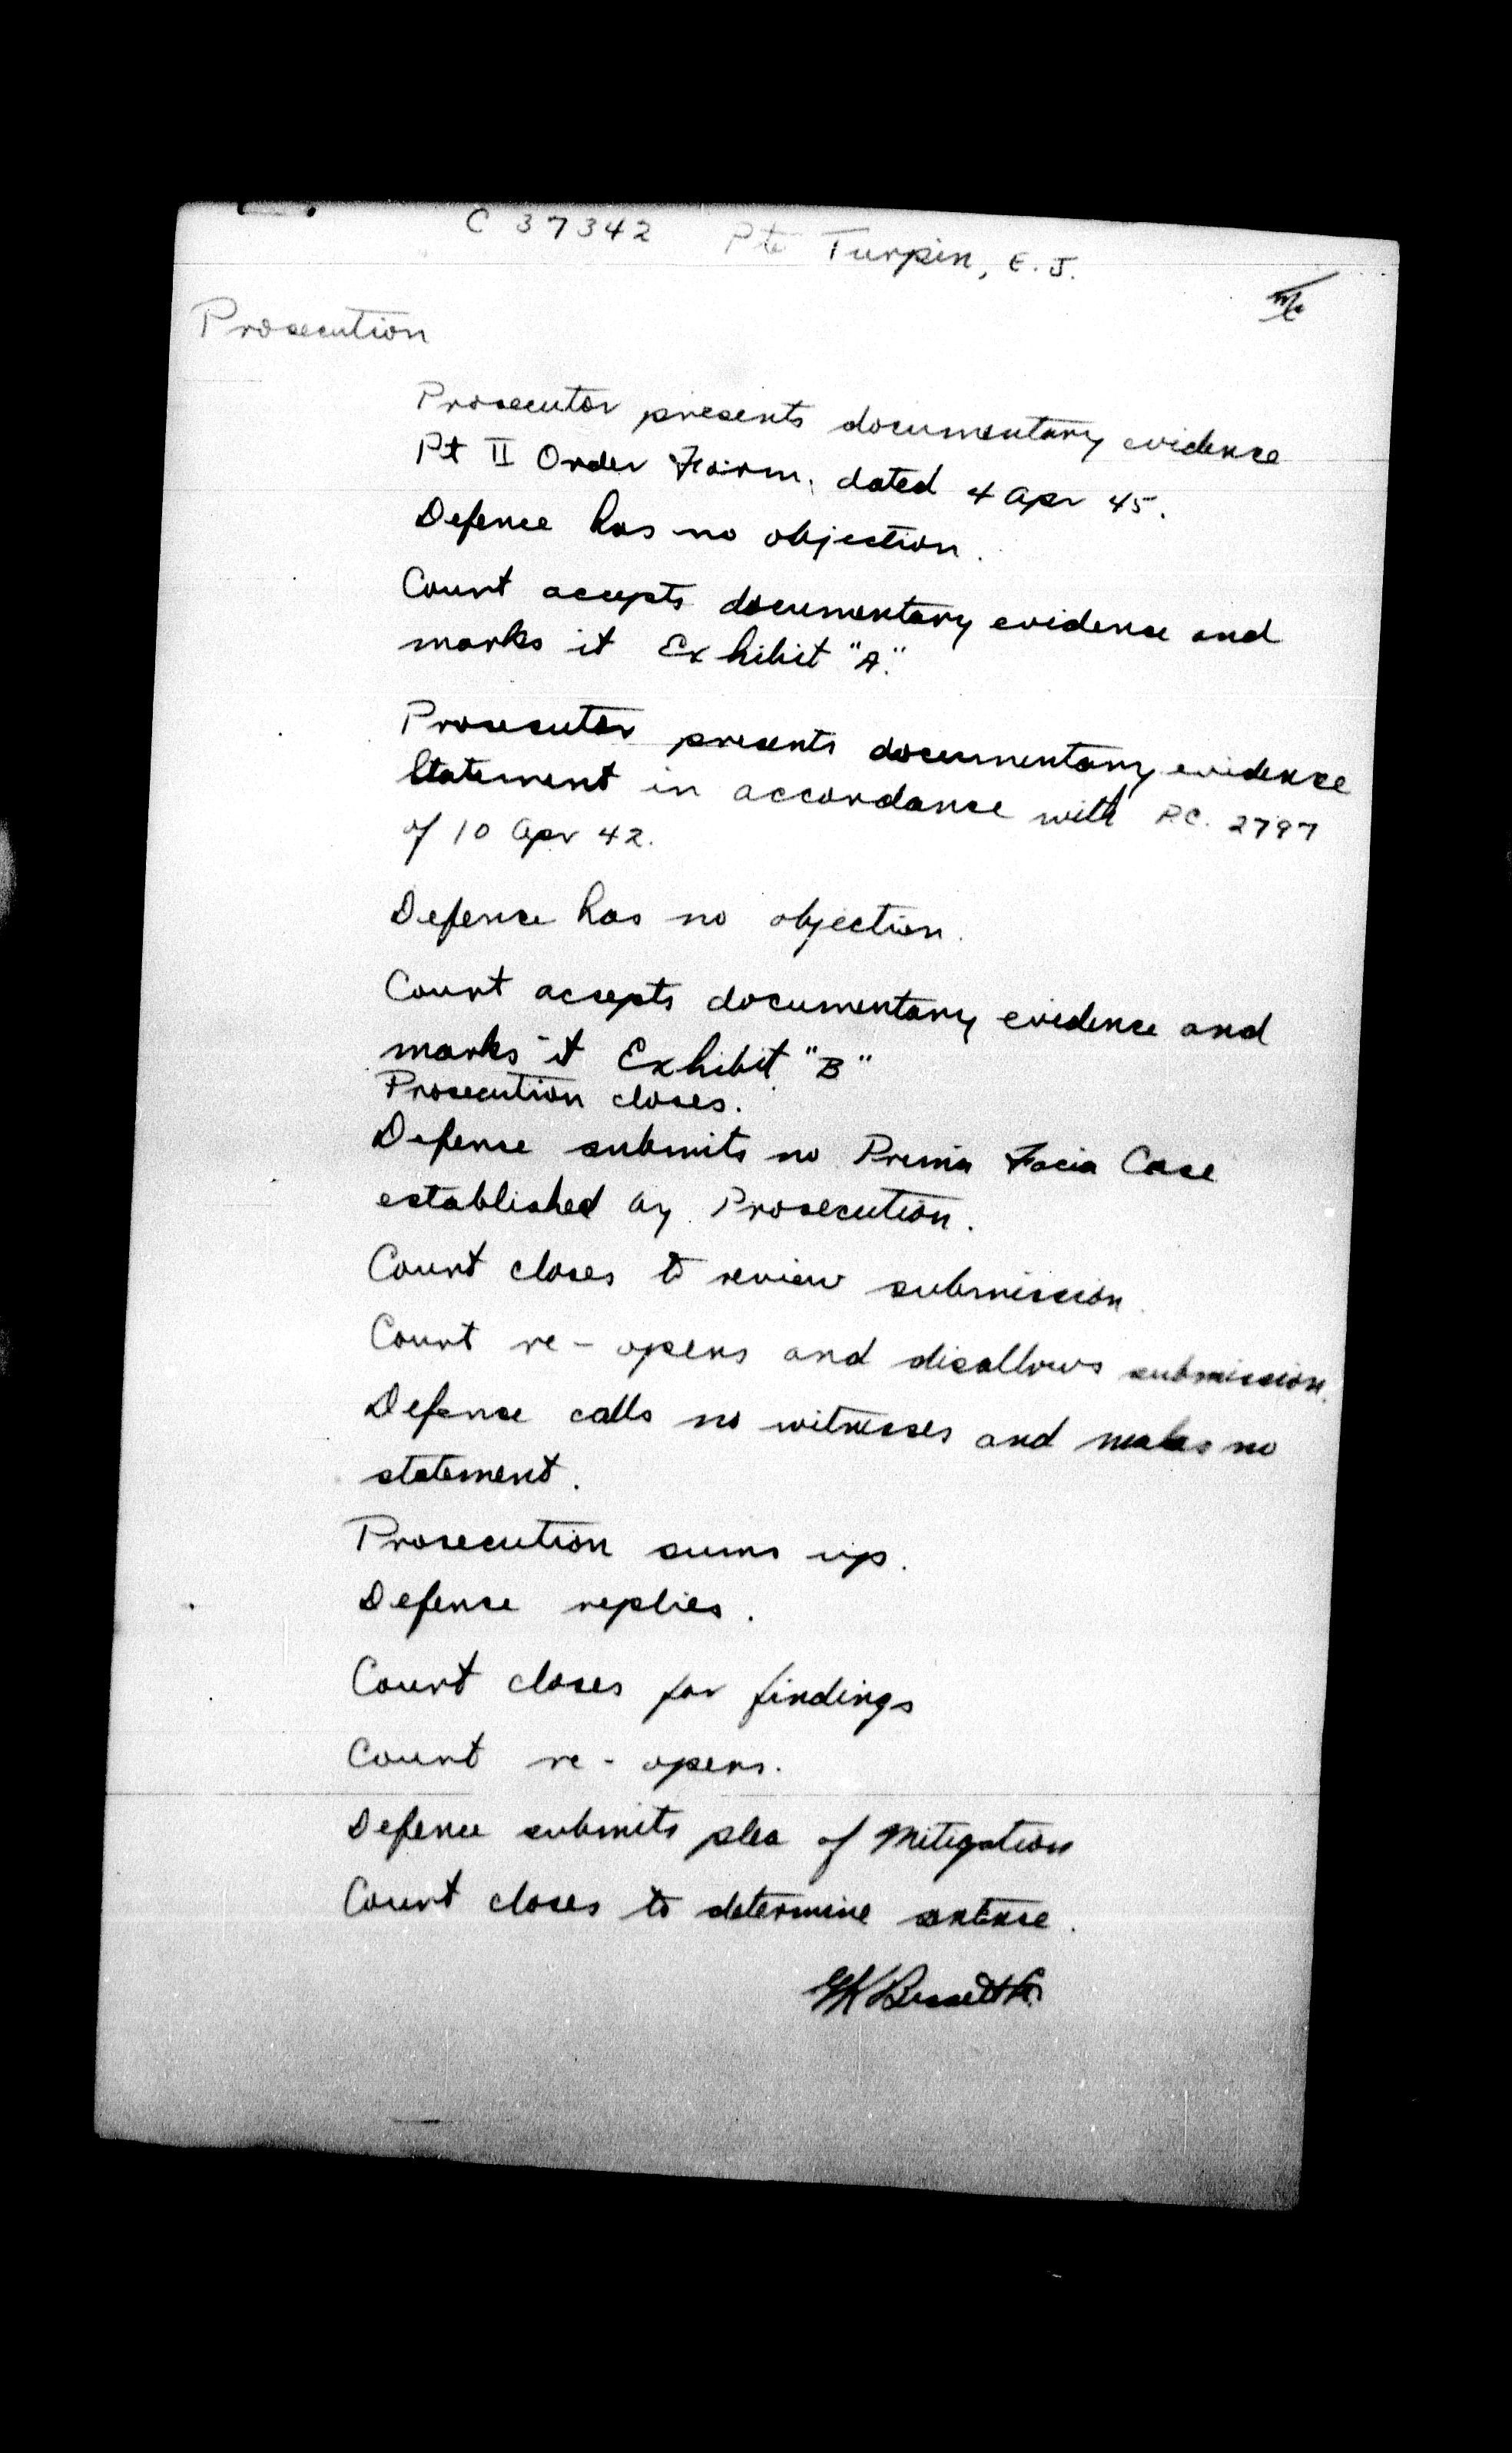 C 37342 Pte Turpin, E. J.
Prosecution
Prosecutor presents documentary evidence
Pt II Order Form, dated 4 Apr 45.
Defence has no objection.
Court accepts documentary evidence and
marks it Exhibit "A".
Prosecutor presents documentary evidence
Statement in accordance with P.C. 2797
of 10 Apr 42.
Defense has no objection.
Court accepts documentary evidence and
marks it Exhibit "B"
Prosecution closes.
Defense submits no Prima Facia Case
established by Prosecution.
Court closes to review submission.
Court re-opens and disallows submission.
Defense calls no witnesses and makes no
statement.
Prosecution sums up.
Defense replies.
Court closes for findings
Court re-opens.
Defence submits plea of Mitigation
Court closes to determine sentence.